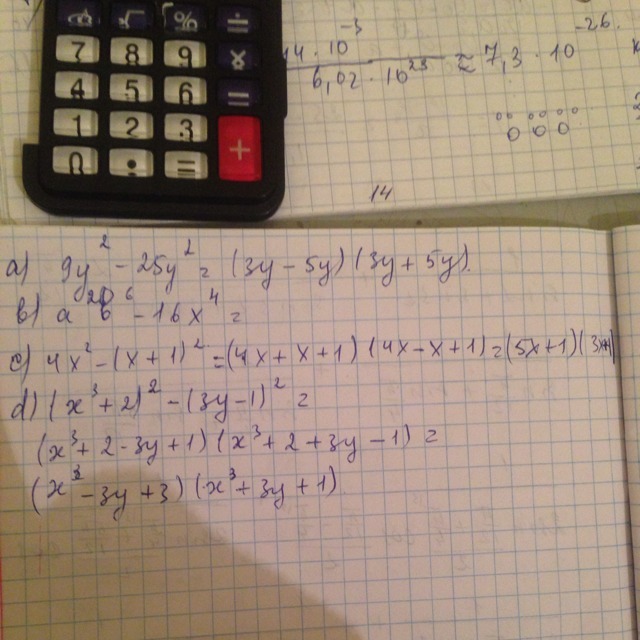 √ % ÷
7 8 9 ×
4 5 6 =
1 2 3 +
0 • =
44 · 10⁻³ / 6,02 · 10²³ ≈ 7,3 · 10⁻²⁶
14
a) 9y² - 25y² = (3y - 5y)(3y + 5y).
b) a²⁰b⁶ - 16x⁴ =
c) 4x² - (x + 1)² = (4x + x + 1)(4x - x + 1) = (5x + 1)(3x
d) (x³ + 2)² - (3y - 1)² =
(x³ + 2 - 3y + 1)(x³ + 2 + 3y - 1) =
(x³ - 3y + 3)(x³ + 3y + 1)